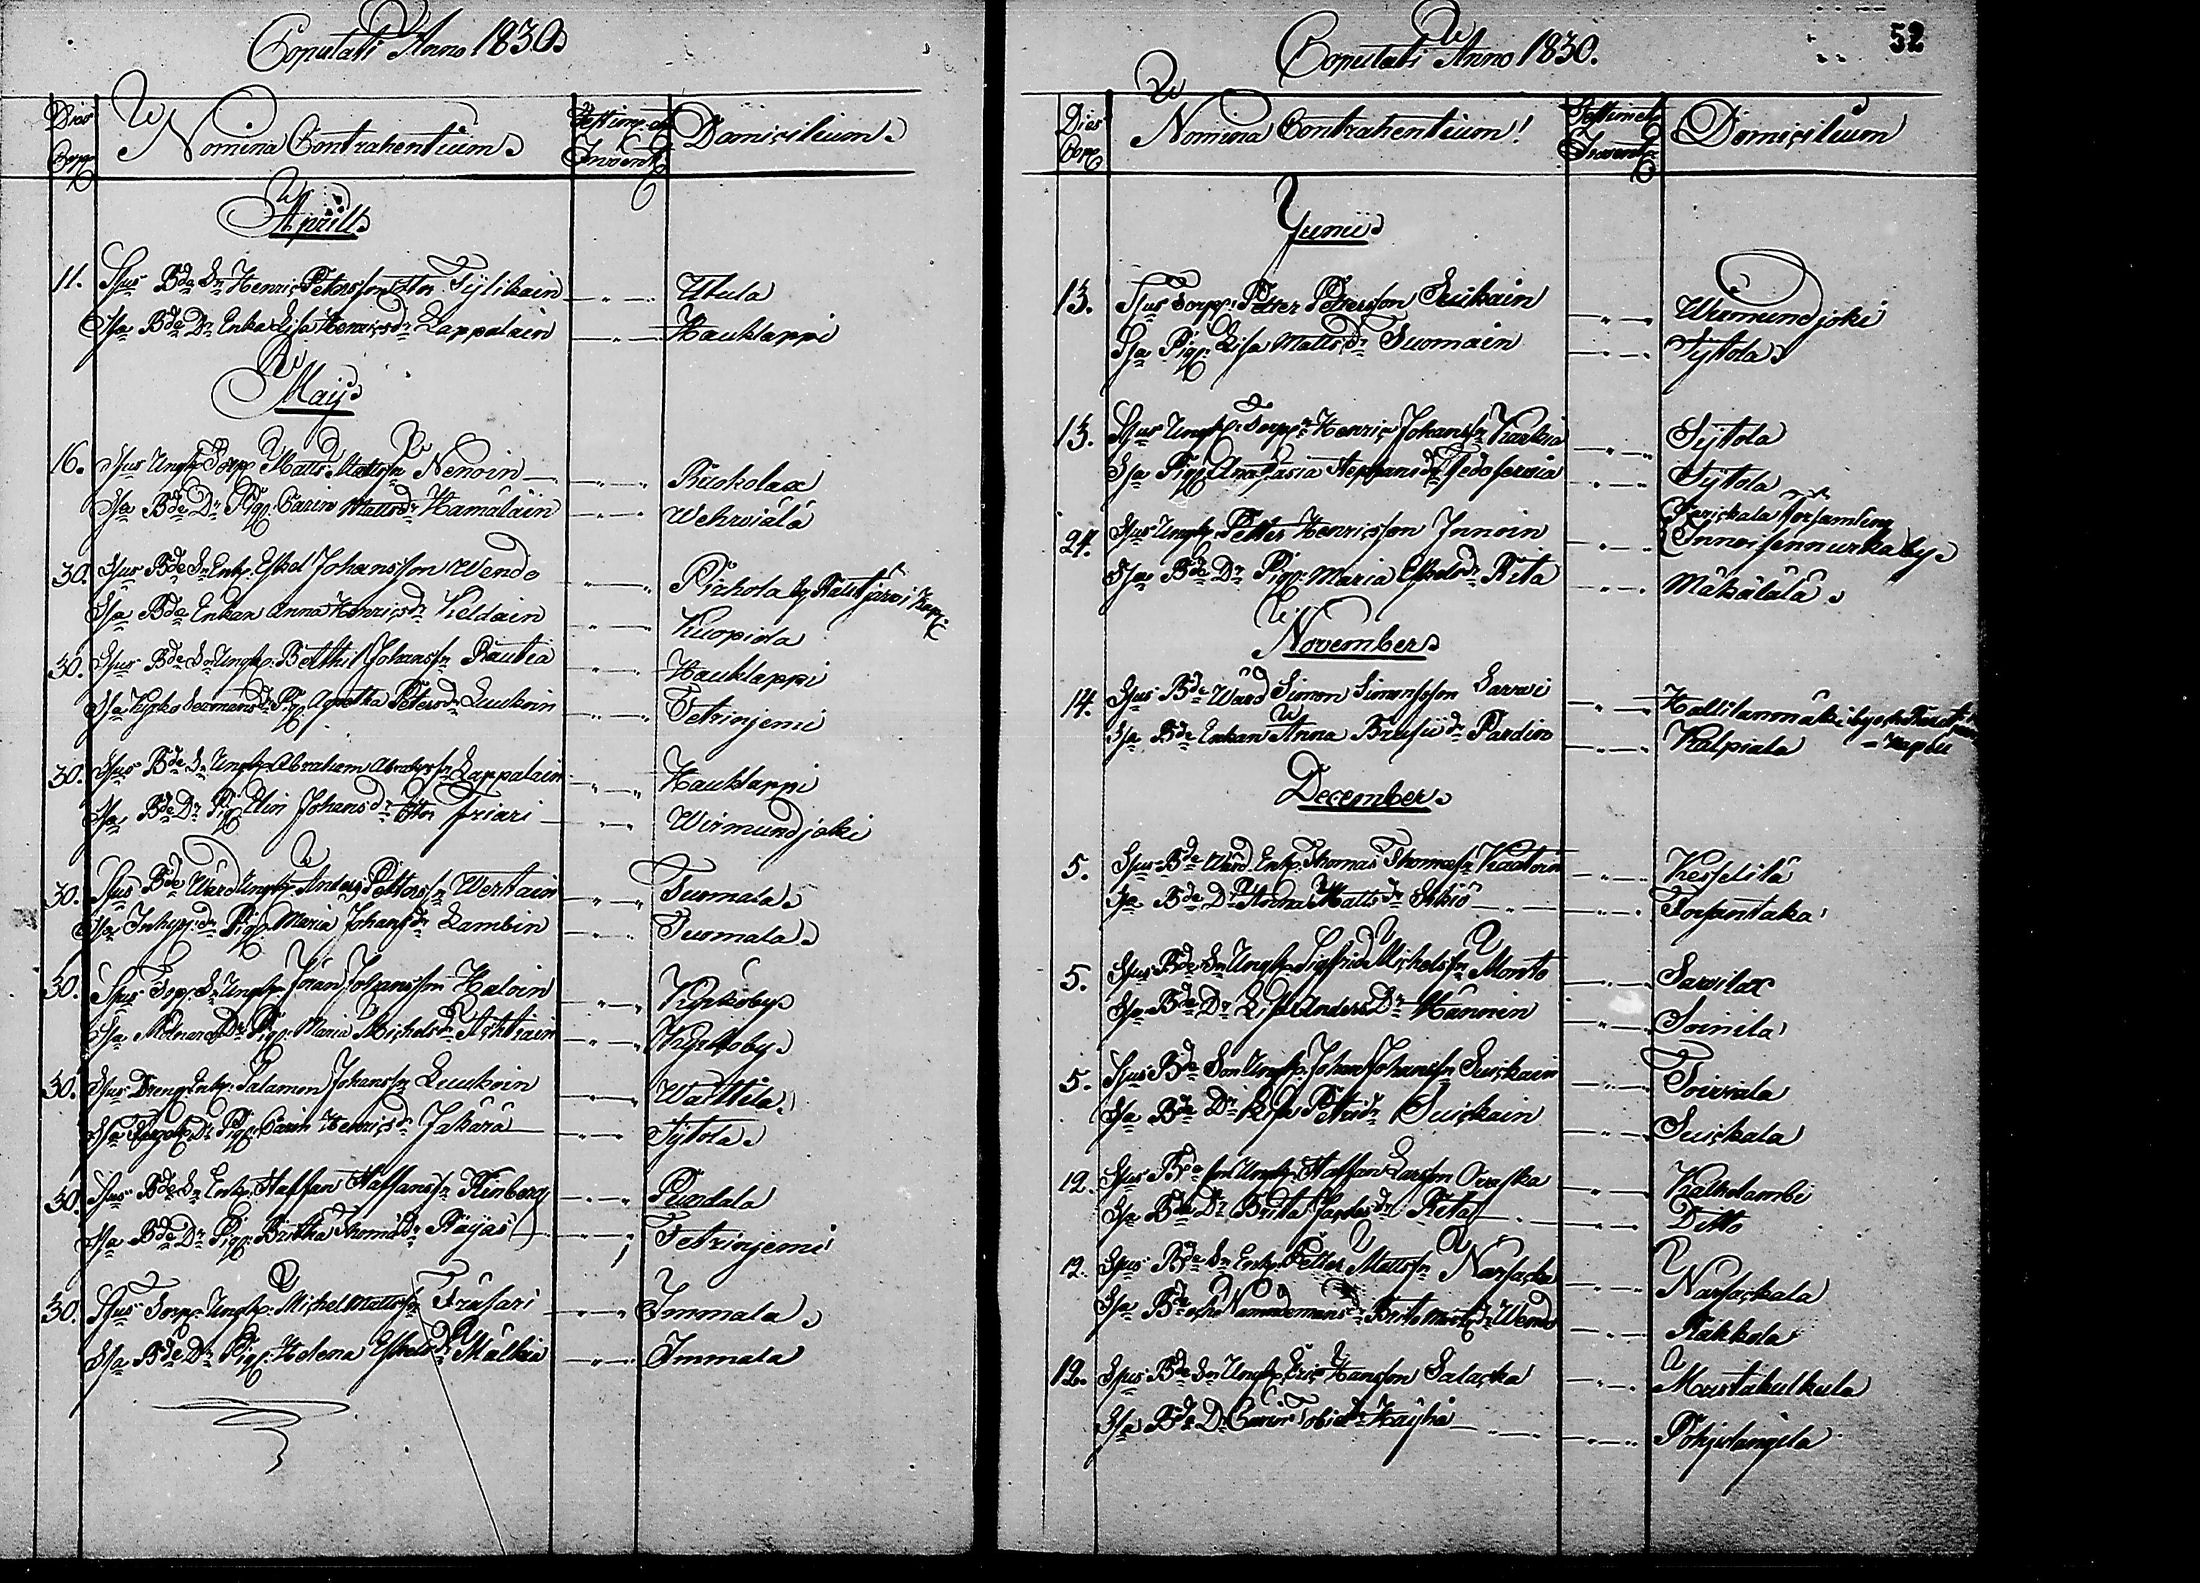 Copulati Anno 1830
Dies Cop.
Nomina Contrahentium
Testim. et Invent.
Domicilium
Aprill
11. Spus Bde Sn Henric Petersson Tylikain Utula
Spa Bde Dr Enka Lisa Henricsdr Lappalain Hauklappi
Maij
16. Spus Ungk. Torp. Matts Mattssn Nenoin Ruokolax
Spa Bde Dr Pig. Carin Mattsdr Hämäläin Wehwiälä
30. Spus Bde Sn Enkl. Eskel Johansson Wendo Pirkola by Rautjärvi Kap.
Spa Bde Enkan Anna Henricsdr Keldain Kuopiola
30. Spus Bde Sn Ungk. Berthil Johanssn Rautia Hauklappi
Spa Pig. Agnetha Petersdr Luukoin Tetrinjemi
30. Spus Bde Sn Ungk. Abraham Abrahssn Lappalain Hauklappi
Spa Bde Dr Pig. Elin Johansdr Friari Wirmundjoki
30. Spus Bde Ungk. Anders Pettersn Wertain Tuomala
Spa Inhys. dr Pig. Maria Johansdr Lambin Tuomala
30. Spus Torp. Sn Ungk. Jöran Johansson Haloin Kyrkoby
Spa Dr Pig. Maria Michelsdr Achtiain Kyrkoby
30. Spus Dreng Enkl. Salamon Johanssn Luukoin Wattila
Spa Dr Pig. Carin Henricsdr Jakärä Sytola
30. Spus Bde Sn Enkl. Staffan Staffanssn Kinberg Puordala
Spa Bde Dr Pig. Britha Thomædr Räyäs Tetrinjemi
30. Spus Torp. Ungk. Michel Mattssn Fräsari Immala
Spa Bde Dr Pig. Helena Eskelsdr Mälkiä Immala
Copulati Anno 1830.
52
Dies Cop.
Nomina Contrahentium
Testim. et Invent.
Domicilium
Junii
13. Spus Torp. Petter Petersson Suikain Wirmundjoki
Spa Pig. Lisa Mattsdr Suomain Sytola
13. Spus Ungk. Torp. Henric Johanssn Karkia Sytola
Spa Pig. Anastasia Stephansdr Sytola
24. Spus Ungk. Petter Henricsson Innoin Parickala församling
by
Spa Bde Dr Pig. Maria Eskelsdr Rita Mäkälälä
November
14. Spus Bde Wärd Simon Simonsson Sarwi Hallilanmäki by
Kapell
Spa Bde Enkan Anna Brusiidr Pardin Kalpiala
December
5. Spus Bde Wärd Enkl. Thomas Thomassn Kesselilä
Spa Bde Dr Anna Mattsdr Torsantaka
5. Spus Bde Sn Ungk. Sigfrid Michelssn Monto Sarvilax
Spa Bde Dr Lisa Andersdr Hännin Soinila
5. Spus Bde Son Ungk. Johan Johanssn Suickain Toiviala
Spa Bde Dr Lisa Petridr Suickain Suickala
12. Spus Bde son Ungk. Staffan Larsson Orraska Kalkolambi
Spa Bde Dr Brita Rita Ditto
12. Spus Bde Sn Enkl. Petter Mattssn Narsacka Narsackala
Spa Bde och Nämndemansdr Brita Wendo Rakkola
12. Spus Bde Sn Ungk. Eric Hansson Salacka Mustakulkula
Spa Bde Dr Carin Tobiædr Häyhä Pohjalangila